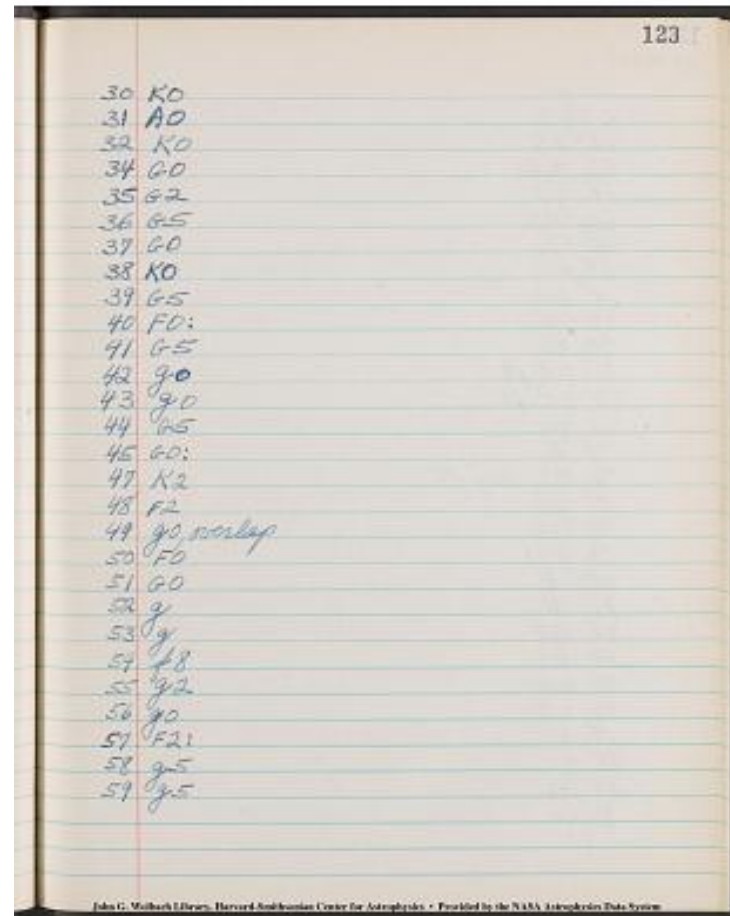 123
30 K0
31 A0
32 K0
34 G0
35 G2
36 G5
37 G0
38 K0
39 G5
40 F0:
41 G5
42 g0
43 g0
44 G5
45 G0:
47 K2
48 F2
49 g0, overlap
50 F0
51 G0
52 g
53 g
54 f8
55 g2
56 g0
57 F2:
58 g5
59 g5
John G. Wolbach Library, Harvard-Smithsonian Center for Astrophysics • Provided by the NASA Astrophysics Data System